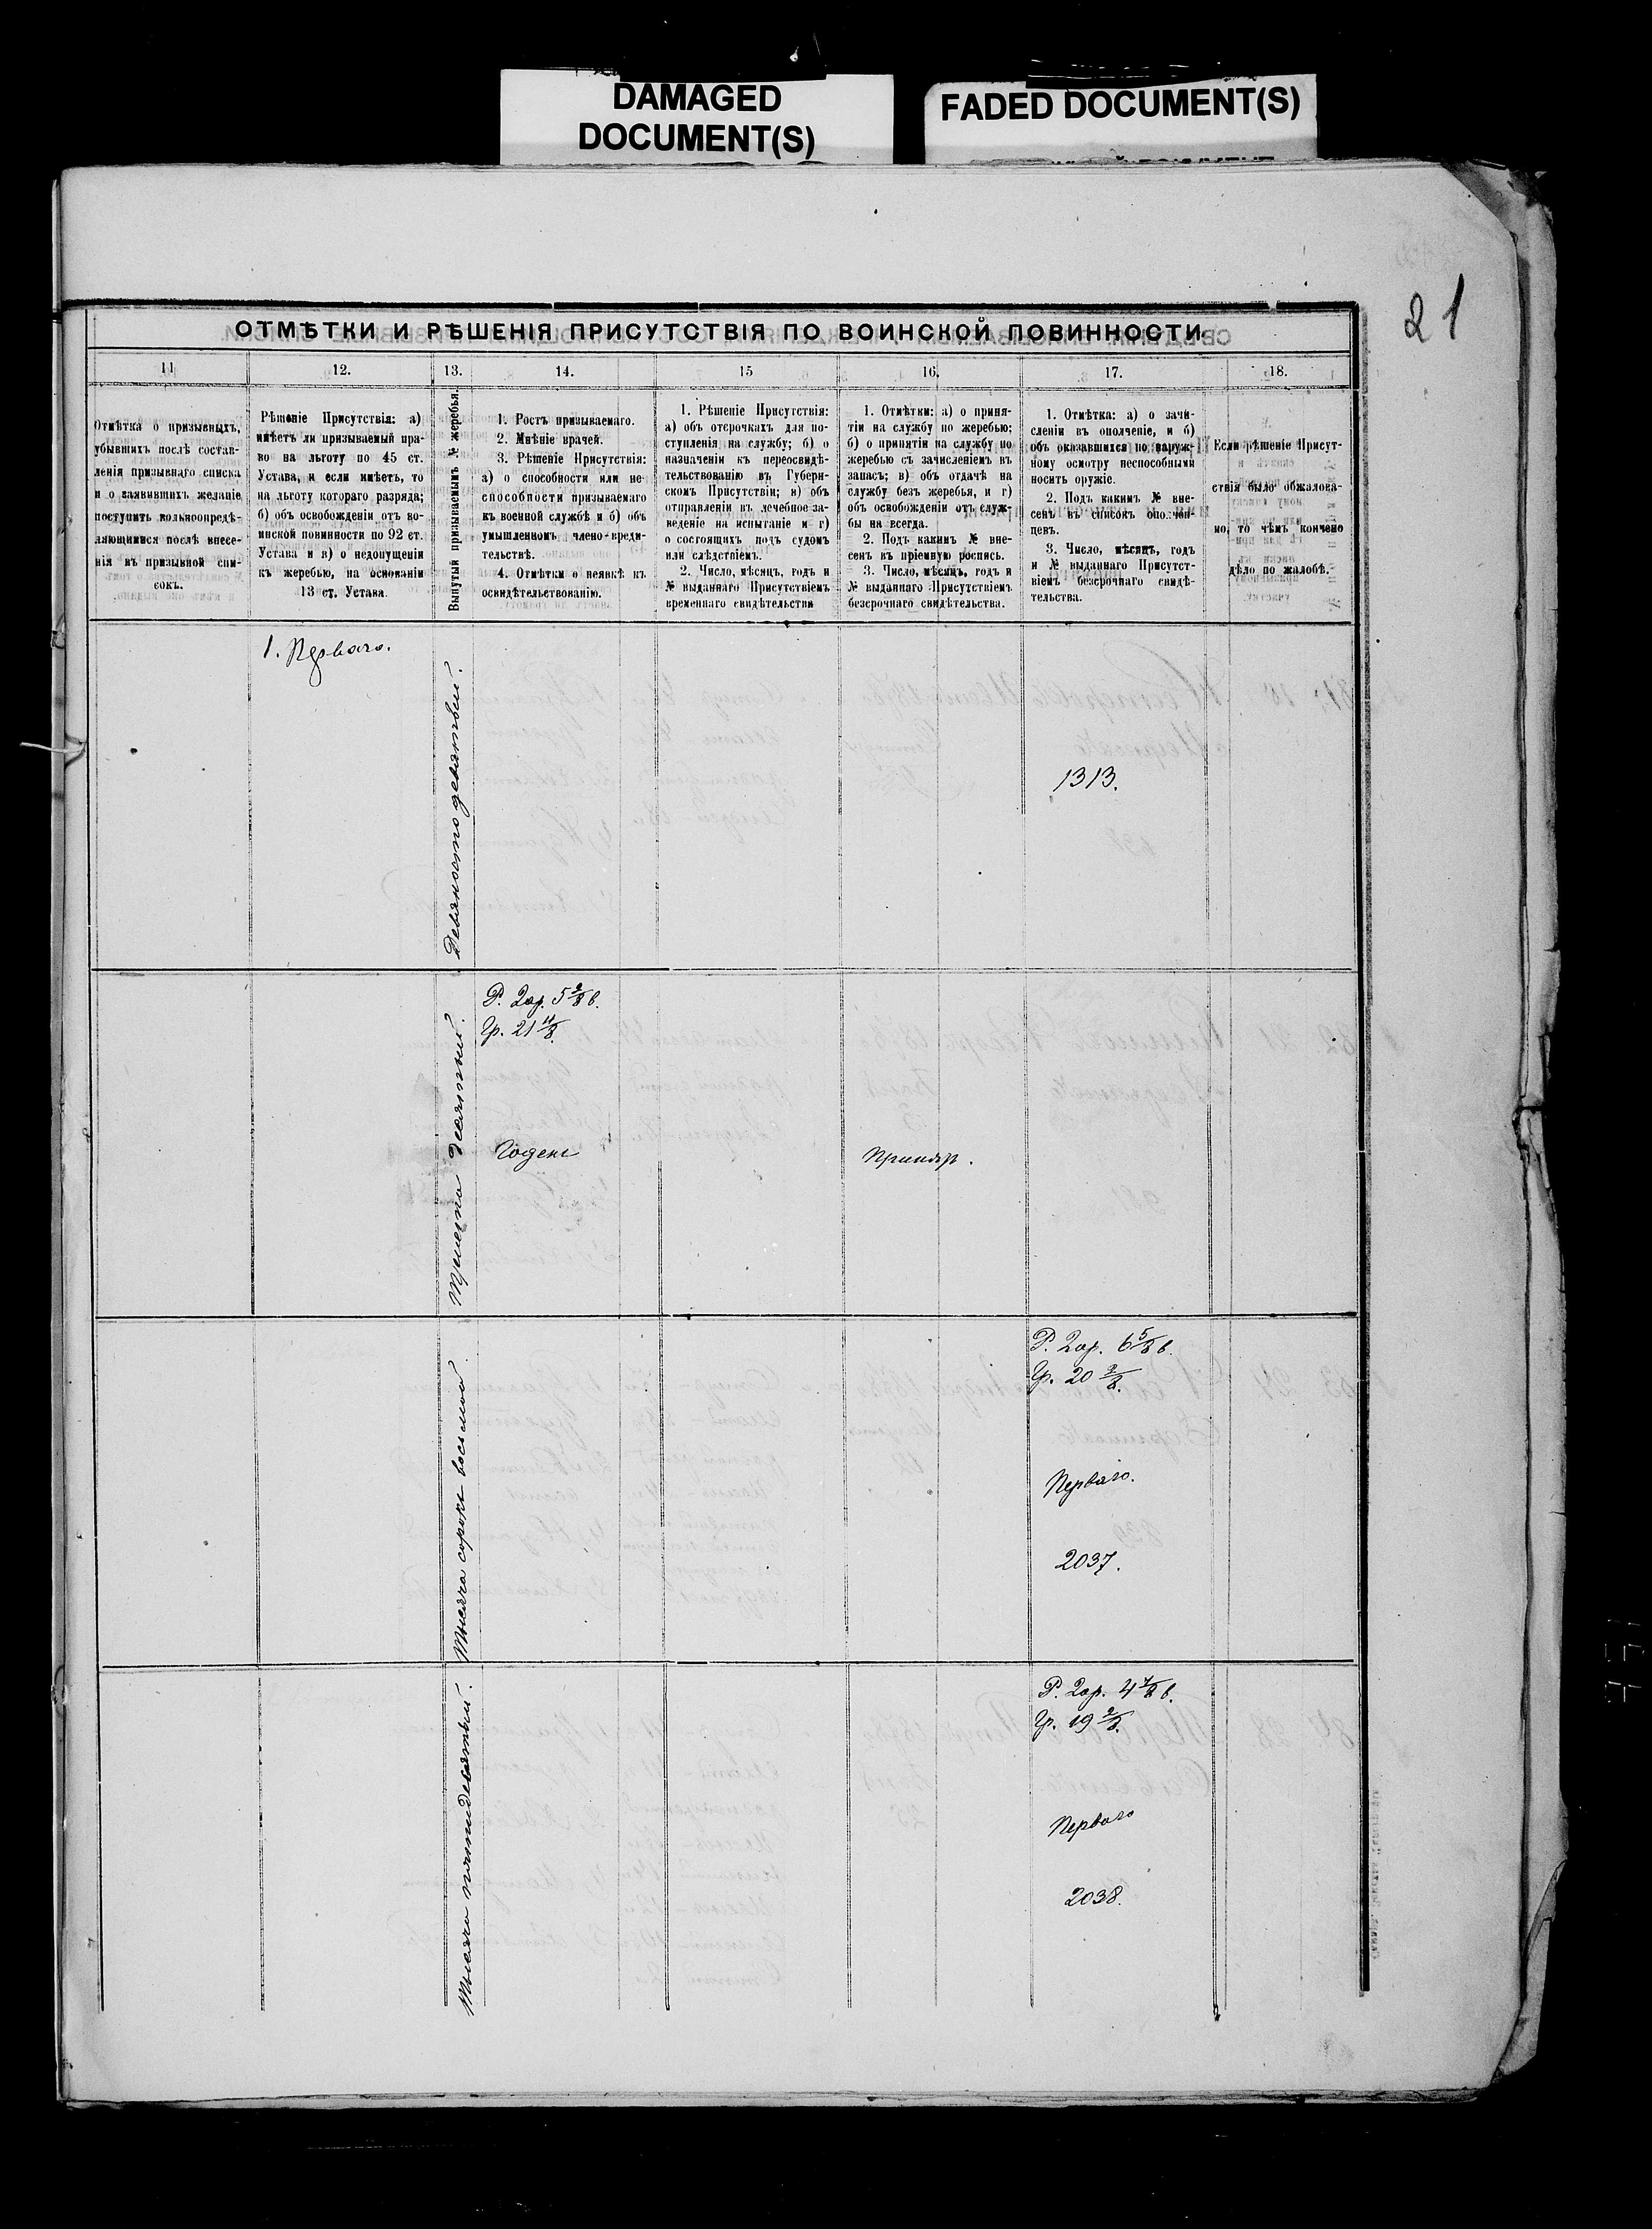 DAMAGED
DOCUMENT(S)
FADED DOCUMENT(S)
21
ОТМѢТКИ И РѢШЕНІЯ ПРИСУТСТВІЯ ПО ВОИНСКОЙ ПОВИННОСТИ
11
Отмѣтка о призывныхъ,
убывшихъ послѣ состав-
ленія призывнаго списка
и о заявившихъ желаніе
поступить вольноопредѣ-
ляющимися послѣ внесе-
нія въ призывной спи-
сокъ.
12.
Рѣшеніе Присутствія: а)
имѣетъ ли призываемый пра-
во на льготу по 45 ст.
Устава, и если имѣетъ, то
на льготу котораго разряда;
б) объ освобожденіи отъ во-
инской повинности по 92 ст.
Устава и в) о недопущеніи
къ жеребью, на основаніи
13 ст. Устава.
13.
Вынутый призываемымъ № жеребья.
14.
1. Ростъ призываемаго.
2. Мнѣніе врачей.
3. Рѣшеніе Присутствія:
а) о способности или не-
способности призываемаго
къ военной службѣ и б) объ
умышленномъ члено-вреди-
тельствѣ.
4. Отмѣтки о неявкѣ къ
освидѣтельствованію.
15
1. Рѣшеніе Присутствія:
а) объ отсрочкахъ для по-
ступленія на службу; б) о
назначеніи къ переосвидѣ-
тельствованію въ Губерн-
скомъ Присутствіи; в) объ
отправленіи въ лечебное за-
веденіе на испытаніе и г)
о состоящихъ подъ судомъ
или слѣдствіемъ.
2. Число, мѣсяцъ, годъ и
№ выданнаго Присутствіемъ
временнаго свидѣтельства
16.
1. Отмѣтки: а) о приня-
тіи на службу по жеребью;
б) о принятіи на службу по
жеребью съ зачисленіемъ въ
запасъ; в) объ отдачѣ на
службу безъ жеребья, и г)
объ освобожденіи отъ служ-
бы на всегда.
2. Подъ какимъ № вне-
сенъ въ пріемную роспись.
3. Число, мѣсяцъ, годъ и
№ выданнаго Присутствіемъ
безсрочнаго свидѣтельства.
17.
1. Отмѣтка: а) о зачи-
сленіи въ ополченіе, и б)
объ оказавшихся по наруж-
ному осмотру неспособными
носить оружіе.
2. Подъ какимъ № вне-
сенъ въ списокъ ополчен-
цевъ.
3. Число, мѣсяцъ, годъ
и № выданнаго Присутст-
віемъ безсрочнаго свидѣ-
тельства.
18.
Если рѣшеніе Присут-
ствія было обжалова-
но, то чѣмъ кончено
дѣло по жалобѣ.
1. Перваго.
Девяносто девятый.
1313.
Р. 2 ар. 5 2/8 в.
Гр. 21 4/8.
Триста десятый.
Годенъ
Принятъ.
Р. 2 ар. 6 5/8 в.
Гр. 20 2/8.
Тысяча сорокъ восьмой.
Перваго.
2037.
Р. 2 ар. 4 7/8 в.
Гр. 19 2/8.
Тысяча пятидесятый.
Перваго
2038.